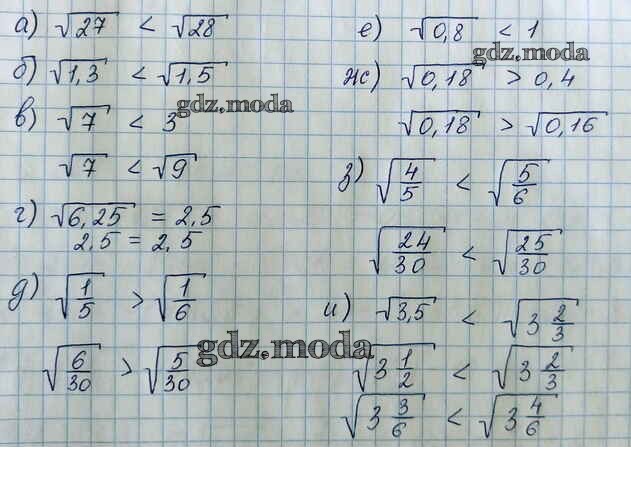 а) √27 < √28
б) √1,3 < √1,5
в) √7 < 3
√7 < √9
г) √6,25 = 2,5
2,5 = 2,5
д) √(1/5) > √(1/6)
√(6/30) > √(5/30)
е) √0,8 < 1
ж) √0,18 > 0,4
√0,18 > √0,16
з) √(4/5) < √(5/6)
√(24/30) < √(25/30)
и) √3,5 < √(3 2/3)
√(3 1/2) < √(3 2/3)
√(3 3/6) < √(3 4/6)
gdz.moda
gdz.moda
gdz.moda